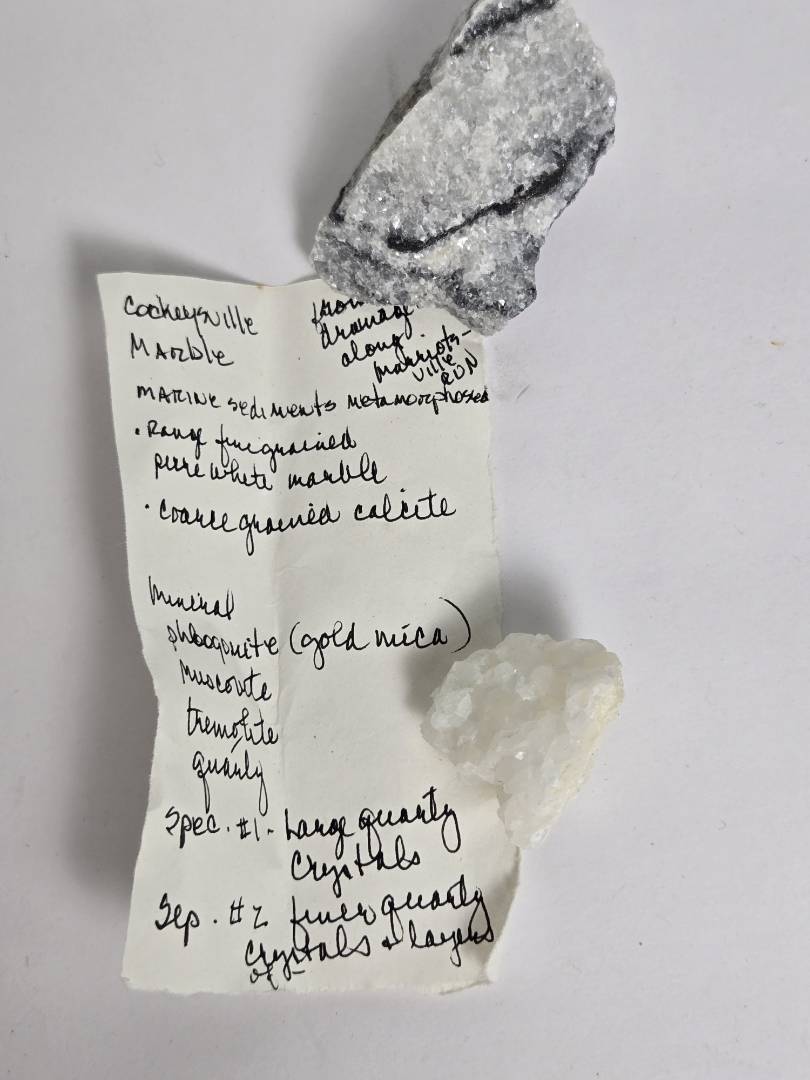 Cockeysville
Marble
from
drainage
along
Marriots-
ville
RUN
MARINE sediments metamorphosed
• Range fine grained
pure white marble
• Coarse grained calcite
Mineral
phlogopite (gold mica)
Muscovite
tremolite
quartz
Spec. #1 - Large quartz
Crystals
Sep. #2 finer quartz
Crystals + layers
of -